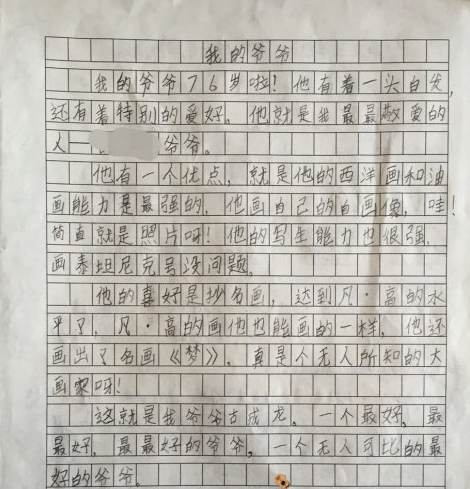 我的爷爷
我的爷爷76岁啦!他有着一头白发,
还有着特别的爱好。他就是我最最敬爱的
人—爷爷。
他有一个优点,就是他的西洋画和油
画能力是最强的,他画自己的自画像,哇!
简直就是照片呀!他的写生能力也很强,
画泰坦尼克号没问题。
他的喜好是抄名画,达到凡·高的水
平了,凡·高的画他也能画的一样,他还
画出了名画《梦》,真是个无人所知的大
画家呀!
这就是我爷爷古成龙。一个最好,最
最好,最最好的爷爷,一个无人可比的最
好的爷爷。